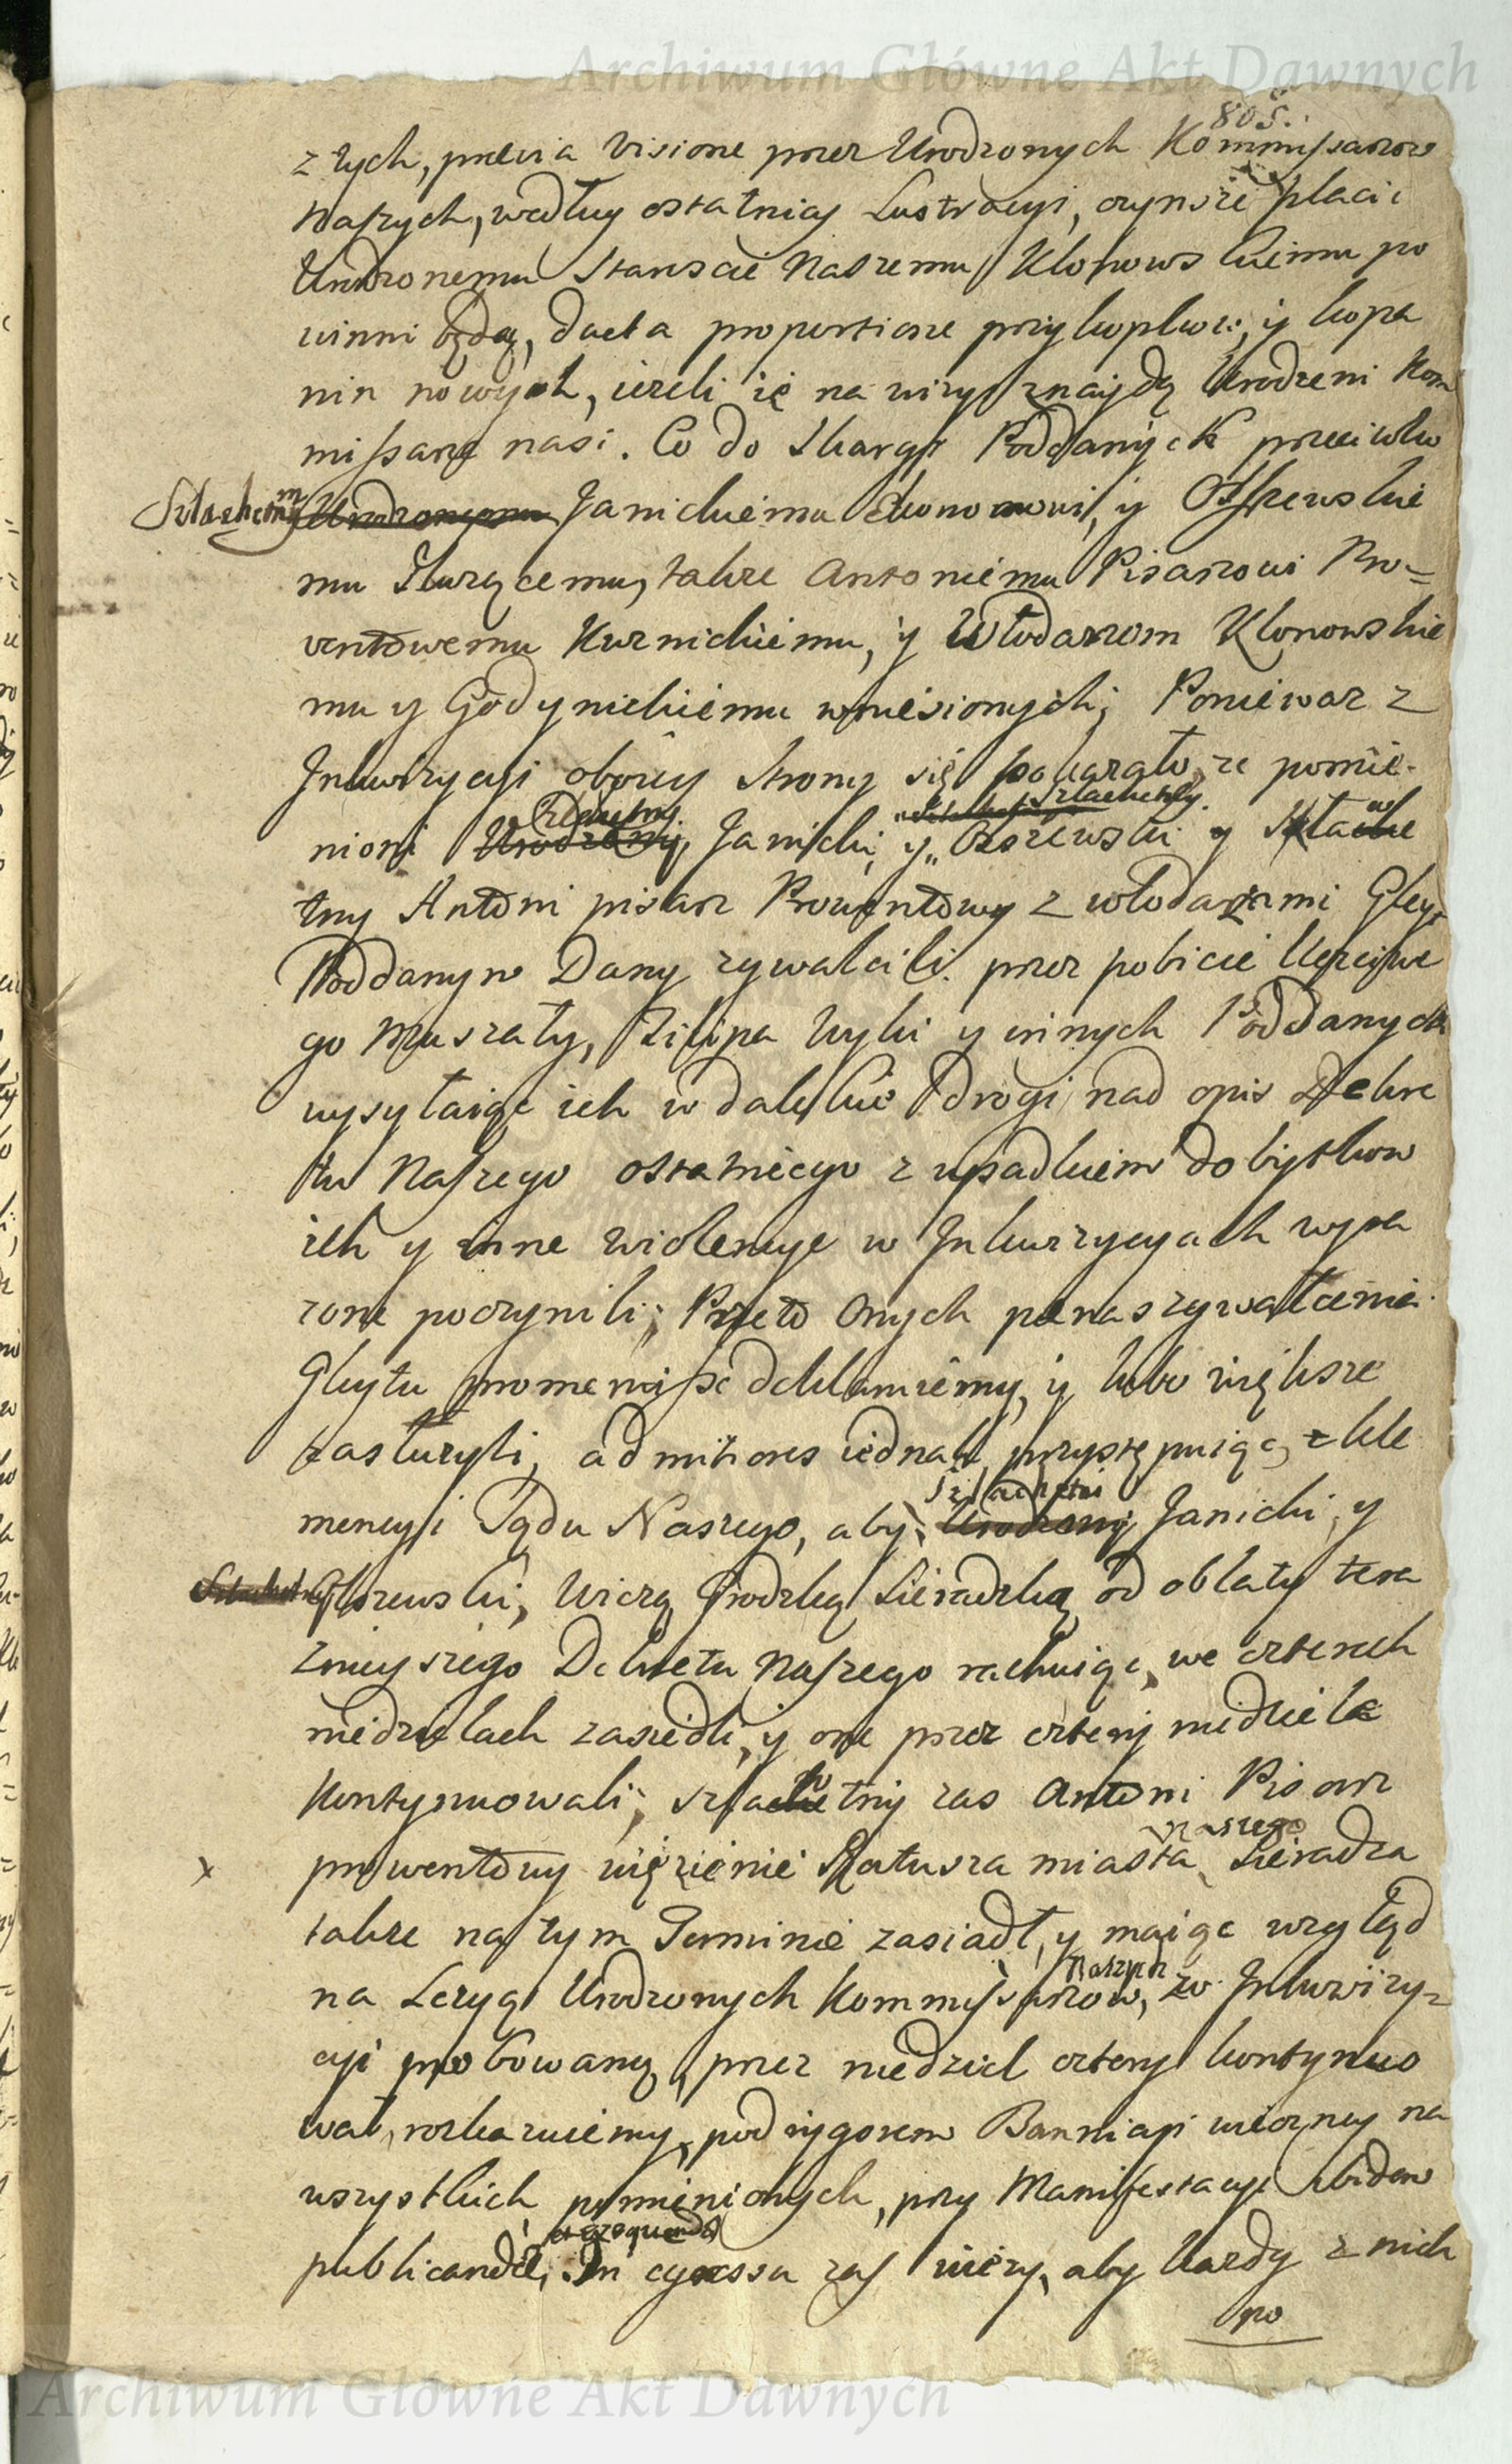 Archiwum Główne Akt Dawnych
805.
z tych, praevia Visione przez Urodzonych Kommissarzow
Naszych, według ostatniey Lustracyi, czynsze płacić
Urodzonemu Staroscie Naszemu Klonowskiemu po
winni będą, facta proportione przykopkow, y kopa
nin nowych, ieżeli ię na wizyi znaydą Urodzeni Kom
missarze nasi. Co do Skargi Poddanych przeciwko
Szlachetnemu Urodzonemu Janickiemu Ekonomowi, y Olszewskie
mu Służącemu, także Antoniemu Pisarzowi Pro=
wentowemu Kurnickiemu, y Włodarzom Klonowskie
mu y Godynickiemu wniesionych; Ponieważ z
Inkwizycyi oboiey strony się pokazało, że pomie-
nioni Urodzony Szlachetny Janicki, y Szlachetny Olszewski y Szlache
tny Antoni pisarz Prowentowy z włodarzami Gleyt
Poddanym Dany zgwałcili przez pobicie Uczciwe
go Muszały, Filipa Kyki y innych Poddanych
wysyłaiąc ich w dalekie drogi nad opis Dekre
tu Naszego ostatniego z upadkiem dobytkow
ich y inne wiolencye w Inkwizycyach wyra
żone poczynili; Przeto Onych paenas zgwałcenia
Gleytu promeruisse deklaruiemy, y lubo większe
zasłużyli, ad mitiores iednak przystępuiąc, z kle
mencyi Sądu Naszego, aby Urodzony Szlachetni Janicki, y
Szlachetny Olszewski, Wieżą Grodzką Sieradzką od oblaty tera
znieyszego Dekretu Naszego rachuiąc, we czterech
niedzielach zasiedli, y one przez cztery niedziele
kontynuowali; szlachetny zas Antoni Pisarz
prowentowy więzienie Ratusza miasta naszego Sieradza
także na tym Terminie zasiadł, y maiąc wzgląd
na Lezyą Urodzonych Kommissarzow Naszych, w Inkwizy=
cyi probowaną, przez niedziel cztery kontynuo
wał, roskazuiemy, pod rygorem Bannicyi wieczney na
wszystkich pomienionych, przy Manifestacyi ibidem
publicandae, et exequendae In egressu zas wieży, aby każdy z nich
po
Archiwum Główne Akt Dawnych